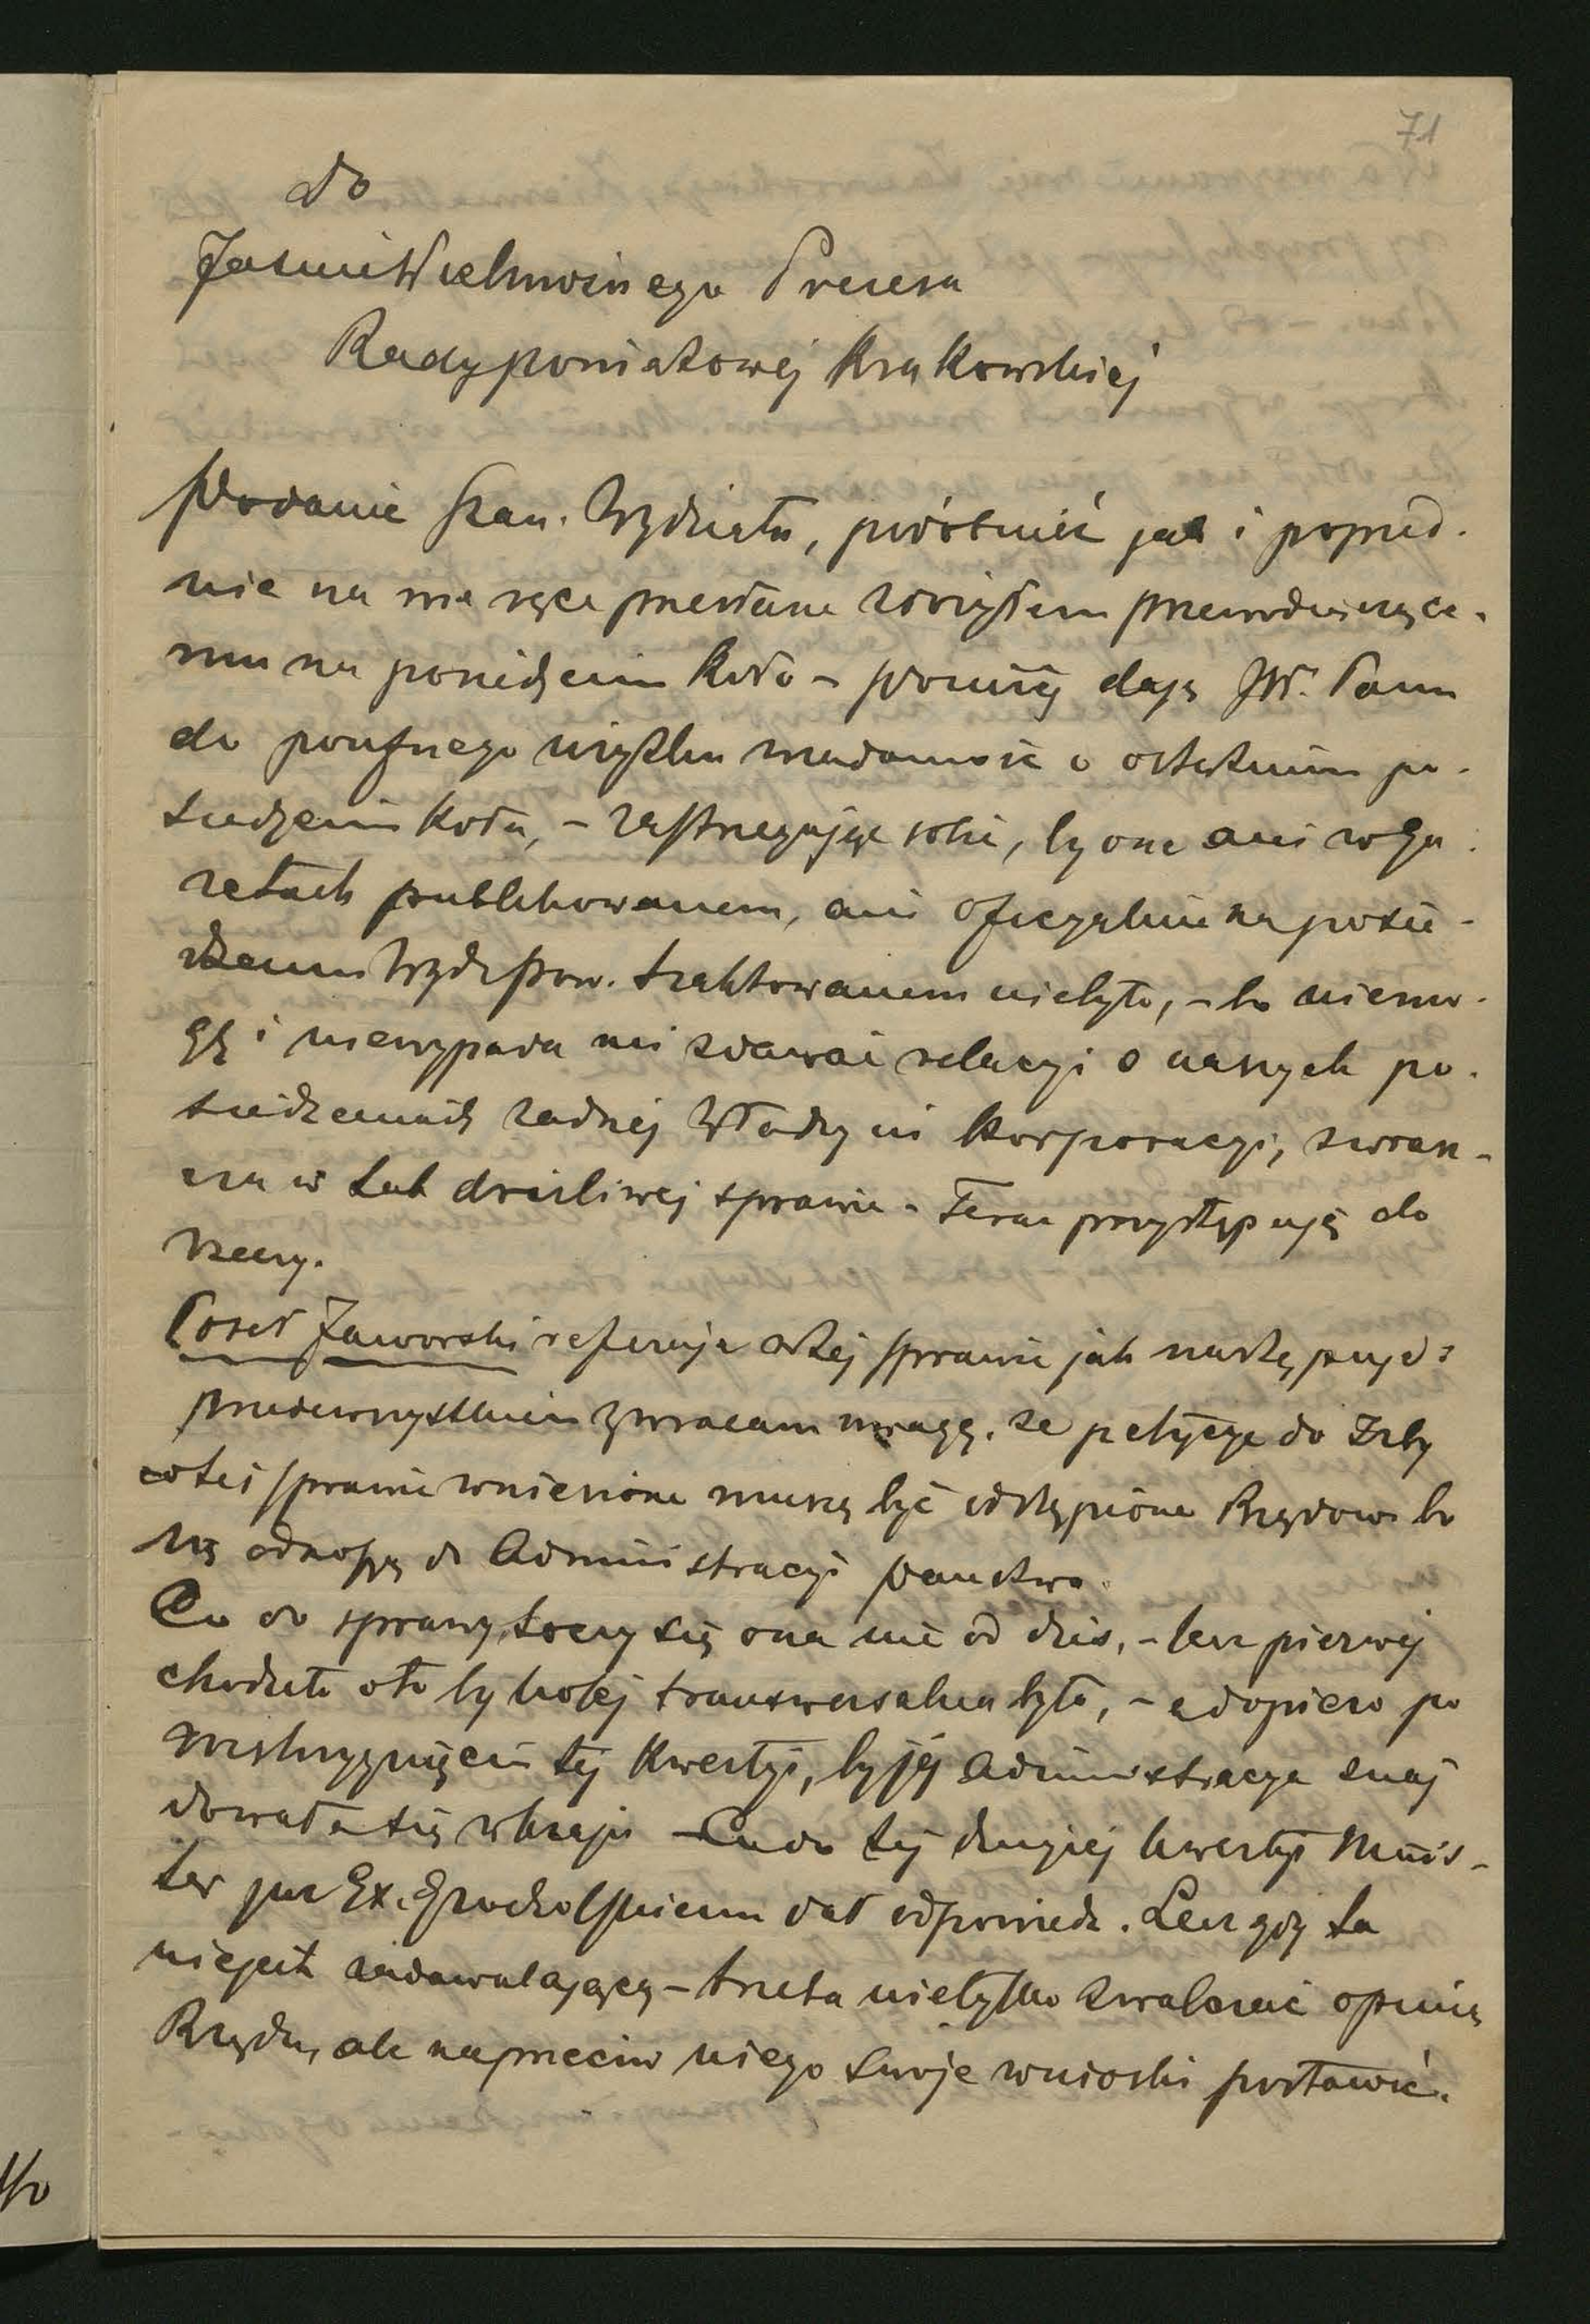 71
Do
JaśnieWielmożnego Prezesa
Rady powiatowej krakowskiej
Podanie Szan. Wydziału, podobnież jak i poprzed-
nie na me ręce przesłane doręczyłem przewodniczące-
mu na posiedzeniu koła – poniżej daję JW. Panu
do poufnego użytku wiadomość o ostatnim po-
siedzeniu koła, – zastrzegając sobie, by one ani w ga-
zetach publikowanem, ani oficyalnie na posie-
dzeniu Wydz. pow. traktowanem nie było, – bo niemo-
gę i niewypada mi zdawać relacyi o naszych po-
siedzeniach żadnej Władzy ni korporacyi, zwłasz-
cza w tak drażliwej sprawie – Teraz przystępuję do
rzeczy.
Poseł Jaworski referuje o tej sprawie jak następuje:
przedewszystkiem zwracam uwagę, że petycye do Izby
w tej sprawie wniesione muszą być odstąpione Rządowi bo
się odnoszą do Administracyi państwa.
Co do sprawy, toczy się ona nie od dziś, – lecz pierwej
chodziło o to by kolej transwersalna była, – a dopiero po
rozstrzygnięciu tej kwestyi, by jej Administracya znaj
dowała się w kraju – Co do tej drugiej kwestyi Minis-
ter już Ex. Grocholskiemu dał odpowiedź. Lecz gdy ta
niejest zadawalającą – trzeba nietylko zwalczać opinię
Rządu, ale naprzeciw niego swoje wnioski postawić.